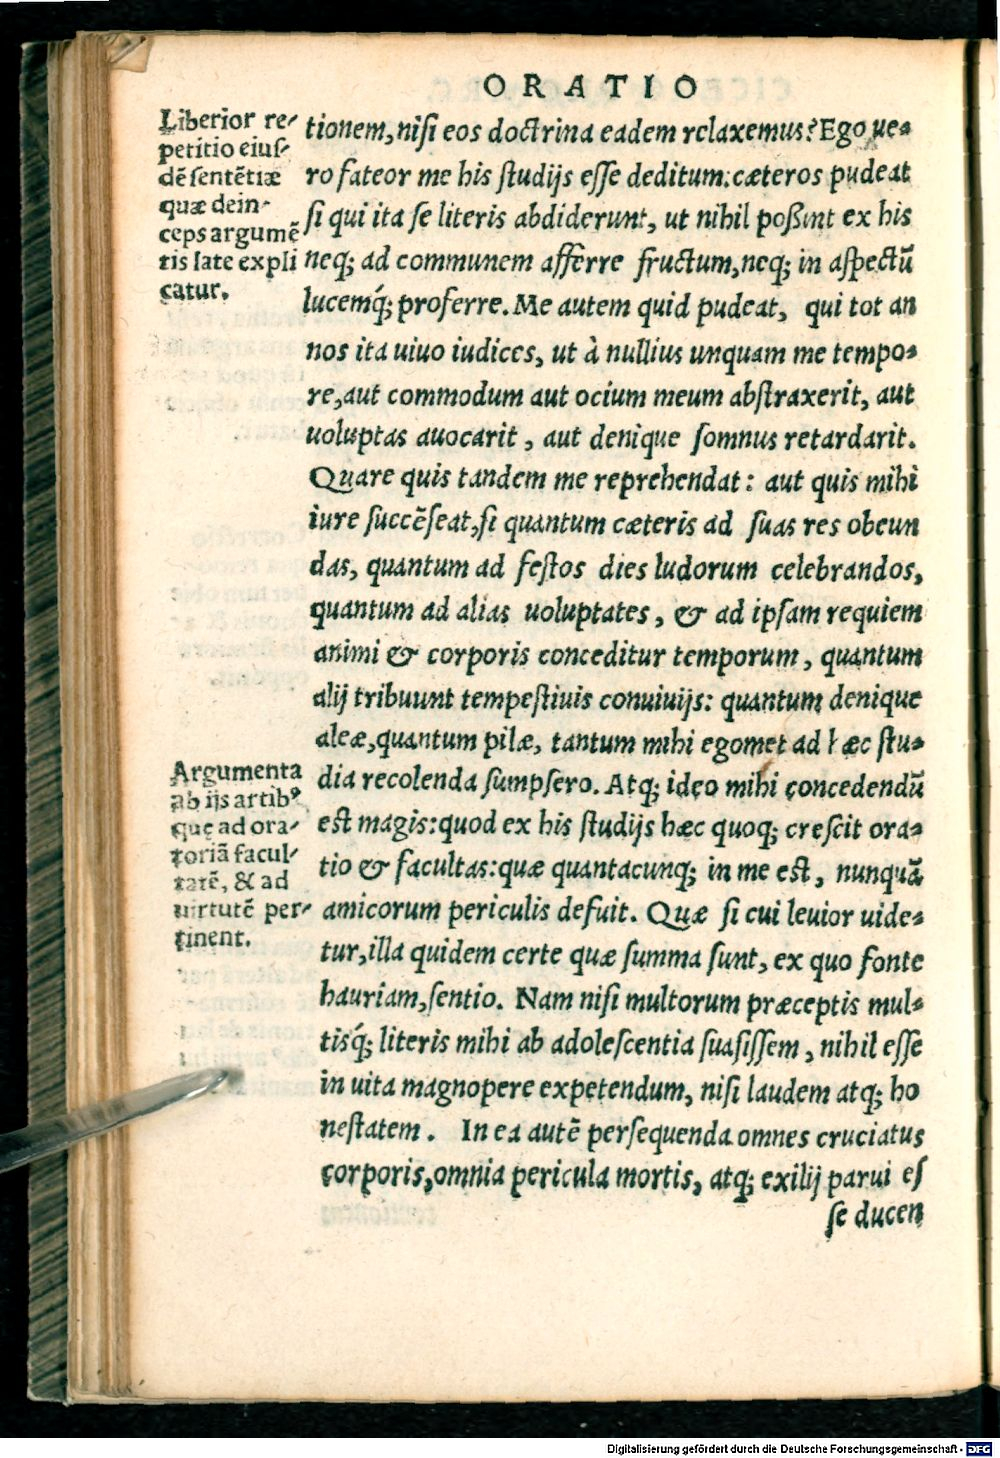 ORATIO
Liberior re-
petitio eiuſ-
dē ſentētiæ
quæ dein-
ceps argumē
tis late expli
catur.
tionem, niſi eos doctrina eadem relaxemus? Ego ue-
ro fateor me his ſtudijs eſſe deditum: cæteros pudeat
ſi qui ita ſe literis abdiderunt, ut nihil poßint ex his
neq; ad communem afferre fructum, neq; in aſpectū
lucemq́; proferre. Me autem quid pudeat, qui tot an
nos ita uiuo iudices, ut à nullius unquam me tempo-
re, aut commodum aut ocium meum abſtraxerit, aut
uoluptas auocarit, aut denique ſomnus retardarit.
Quare quis tandem me reprehendat: aut quis mihi
iure ſuccēſeat, ſi quantum cæteris ad ſuas res obeun
das, quantum ad feſtos dies ludorum celebrandos,
quantum ad alias uoluptates, & ad ipſam requiem
animi & corporis conceditur temporum, quantum
alij tribuunt tempeſtiuis conuiuijs: quantum denique
aleæ, quantum pilæ, tantum mihi egomet ad hæc ſtu-
dia recolenda ſumpſero. Atq; ideo mihi concedendū
eſt magis: quod ex his ſtudijs hæc quoq; creſcit ora-
tio & facultas: quæ quantacunq; in me eſt, nunquā
amicorum periculis defuit. Quæ ſi cui leuior uide-
tur, illa quidem certe quæ ſumma ſunt, ex quo fonte
hauriam, ſentio. Nam niſi multorum præceptis mul-
tisq́; literis mihi ab adoleſcentia ſuaſiſſem, nihil eſſe
in uita magnopere expetendum, niſi laudem atq; ho
neſtatem. In ea autē perſequenda omnes cruciatus
corporis, omnia pericula mortis, atq; exilij parui eſ
ſe ducen
Argumenta
ab ijs artibꝰ
quę ad ora-
toriā facul-
tatē, & ad
uirtutē per-
tinent.
Digitalisierung gefördert durch die Deutsche Forschungsgemeinschaft - DFG